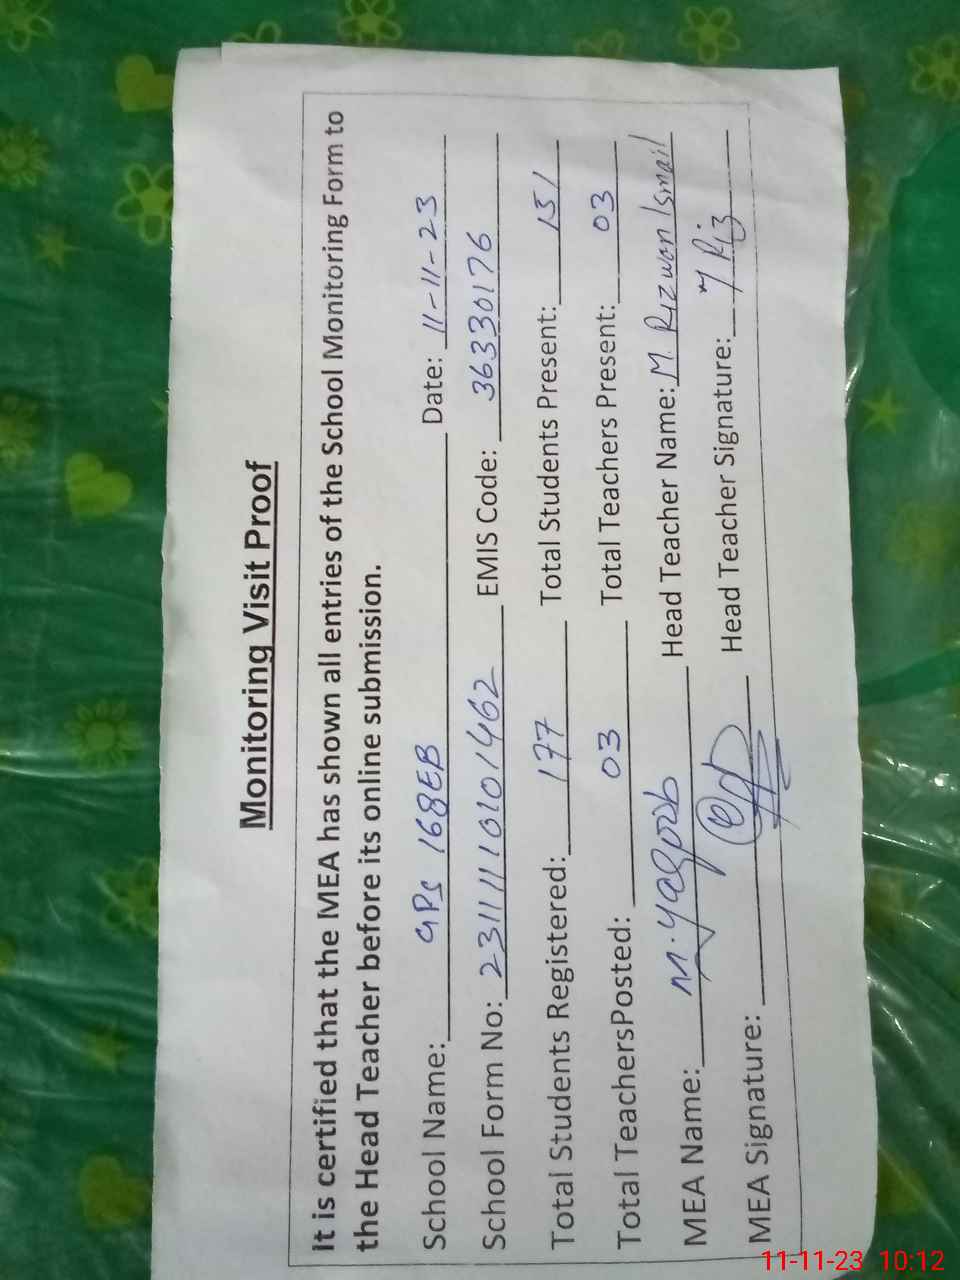 Monitoring Visit Proof
It is certified that the MEA has shown all entries of the School Monitoring Form to
the Head Teacher before its online submission.
School Name: GPS 168EB Date: 11-11-23
School Form No: 2311110101462 EMIS Code: 36330176
Total Students Registered: 177 Total Students Present: 151
Total TeachersPosted: 03 Total Teachers Present: 03
MEA Name: M. Yaqoob Head Teacher Name: M. Rizwan Ismail
MEA Signature: Head Teacher Signature: M Riz
11-11-23 10:12